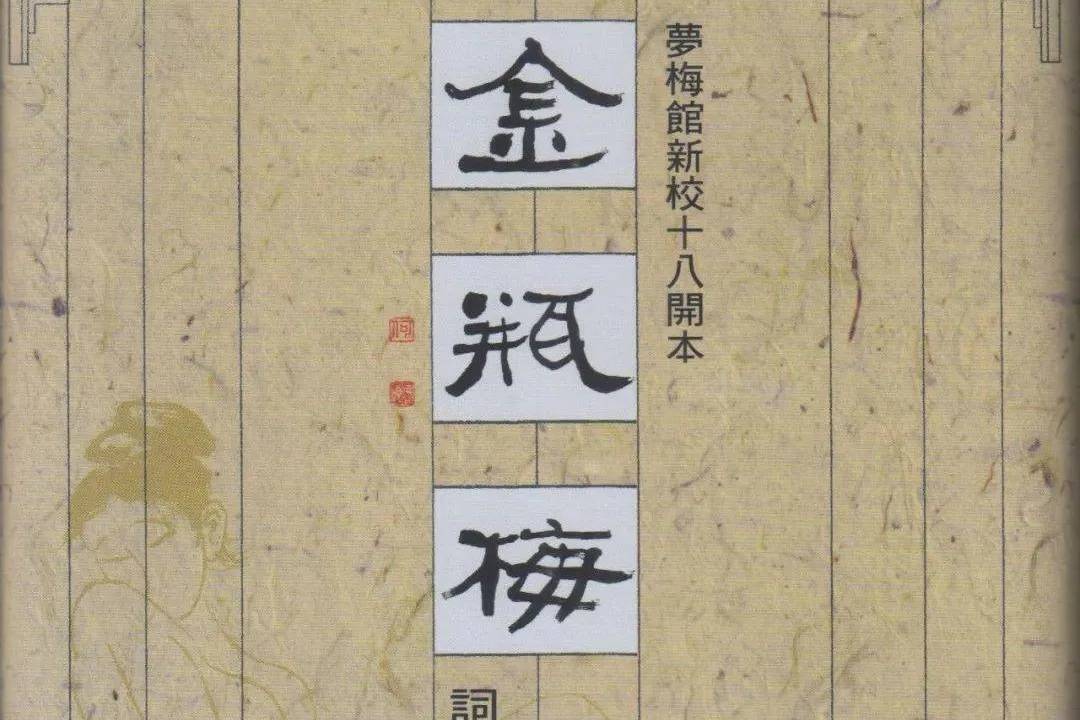 夢梅館新校十八開本
金瓶梅詞